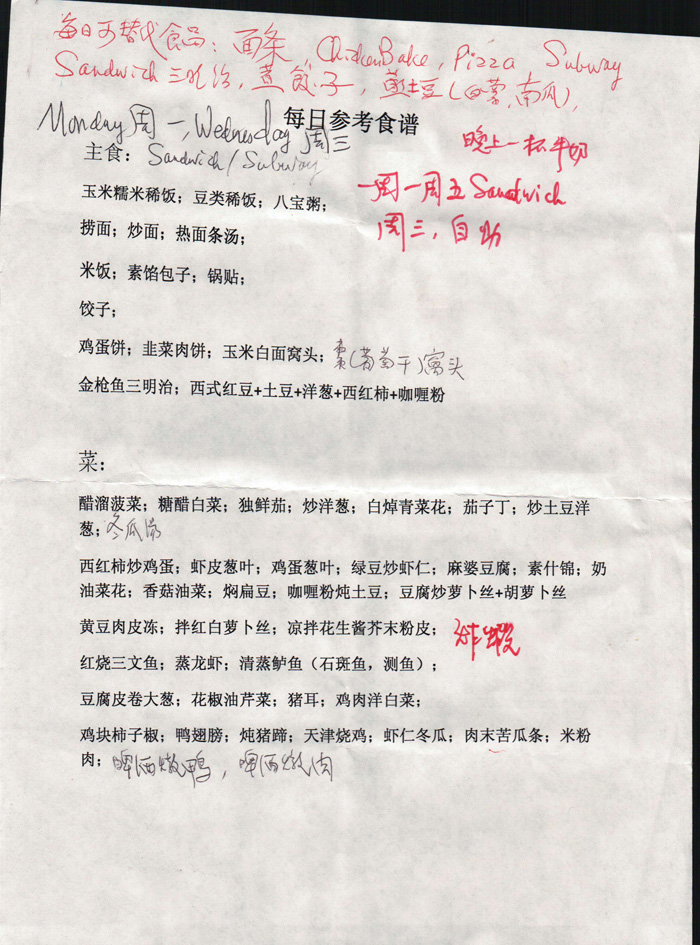 每日可替代食品：面条 Chicken Bake, Pizza Subway
Sandwich 三明治, 煮饺子, 蒸土豆(白薯,南瓜),
Monday 周一, Wednesday 周三
每日参考食谱
晚上一杯牛奶
主食: Sandwich/Subway
周一周五 Sandwich
玉米糯米稀饭；豆类稀饭；八宝粥；
周三, 自助
捞面；炒面；热面条汤；
米饭；素馅包子；锅贴；
饺子；
鸡蛋饼；韭菜肉饼；玉米白面窝头；枣(葡萄干)窝头
金枪鱼三明治；西式红豆+土豆+洋葱+西红柿+咖喱粉
菜：
醋溜菠菜；糖醋白菜；独鲜茄；炒洋葱；白焯青菜花；茄子丁；炒土豆洋
葱；冬瓜汤
西红柿炒鸡蛋；虾皮葱叶；鸡蛋葱叶；绿豆炒虾仁；麻婆豆腐；素什锦；奶
油菜花；香菇油菜；焖扁豆；咖喱粉炖土豆；豆腐炒萝卜丝+胡萝卜丝
黄豆肉皮冻；拌红白萝卜丝；凉拌花生酱芥末粉皮；炸虾
红烧三文鱼；蒸龙虾；清蒸鲈鱼（石斑鱼，测鱼）；
豆腐皮卷大葱；花椒油芹菜；猪耳；鸡肉洋白菜；
鸡块柿子椒；鸭翅膀；炖猪蹄；天津烧鸡；虾仁冬瓜；肉末苦瓜条；米粉
肉；啤酒燉鸭，啤酒燉肉